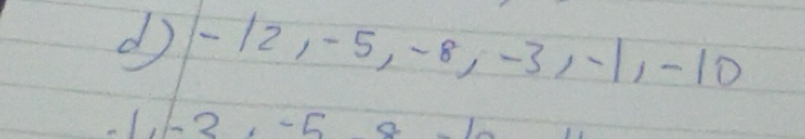 d) -12, -5, -8, -3, -1, -10
-1, -3, -5